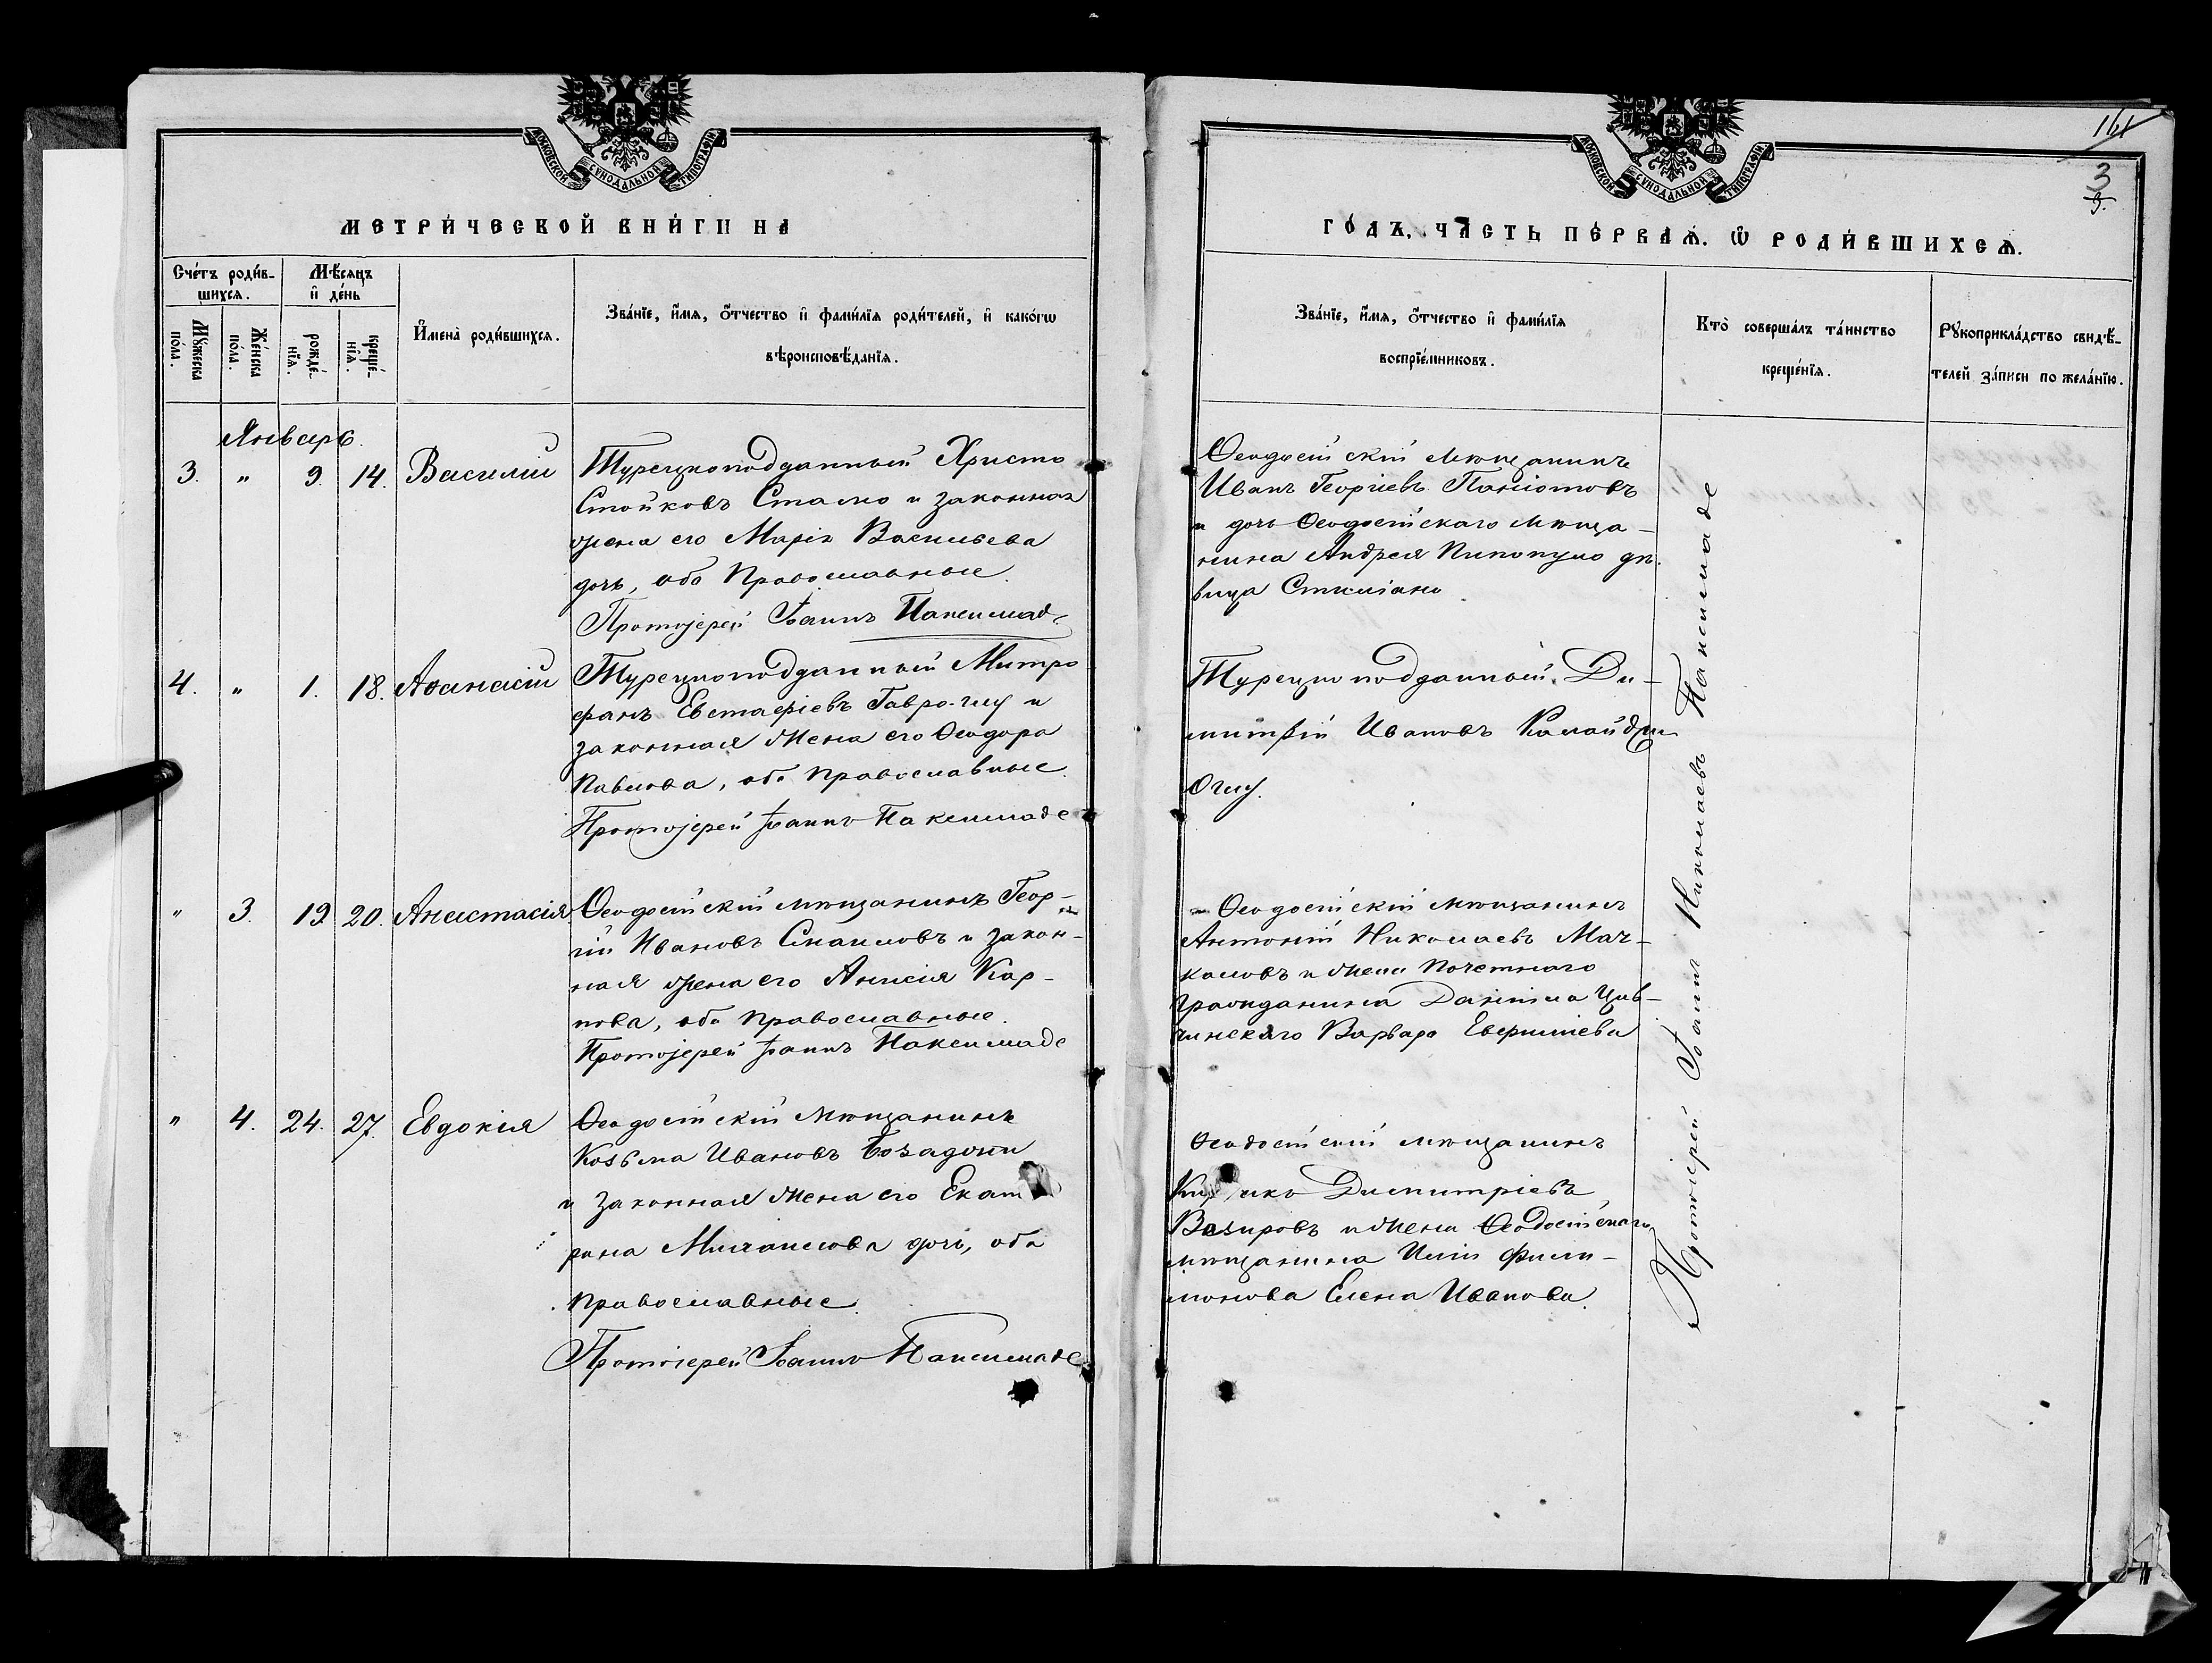 161
3
3.
МОСКОВСКОЙ СУНОДАЛЬНОЙ ТИПОГРАФІИ
МОСКОВСКОЙ СУНОДАЛЬНОЙ ТИПОГРАФІИ
МЕТРИ́ЧЕСКОЙ КНИ́ГИ НА
ГО́ДЪ, ЧА́СТЬ ПЕ́РВАѦ. Ѡ҆ РОДИ́ВШИХСѦ.
Сче́тъ роди́в-
шихсѧ.
Мѣ́сѧцъ
и҆ де́нь
Мꙋ́жеска
по́ла.
Же́нска
по́ла.
рожде́-
нїѧ.
креще́-
нїѧ.
И҆мена̀ роди́вшихсѧ.
Зва́нїе, и҆́мѧ, ѻ҆́тчество и҆ фами́лїѧ роди́телей, и҆ како́гѡ
вѣроисповѣ́данїѧ.
Зва́нїе, и҆́мѧ, ѻ҆́тчество и҆ фами́лїѧ
воспрїе́мниковъ.
Кто̀ соверша́лъ та́инство
креще́нїѧ.
Рꙋкоприкла́дство свидѣ́-
телей за́писи по жела́нїю.
Январь.
3. „ 9. 14. Василій
Турецкоподданный Христо
Стойковъ Стамо и законная
жена его Марія Васильева
дочь, оба Православные.
Протоіерей Іоаннъ Паксимаде
Ѳеодосійскій мѣщанинъ
Иванъ Георгіевъ Паніотовъ
и дочь Ѳеодосійскаго мѣща-
нина Андрея Пипопуло дѣ-
вица
4. „ 1. 18. Аѳанасій
Турецкоподданный Митро
фанъ Евстафіевъ и
законная жена его Ѳеодора
Павлова, оба православные.
Протоіерей Іоаннъ Паксимаде
Турецкоподданный Ди-
митрій Ивановъ Калайджи
Оглу.
„ 3. 19. 20. Анастасія
Ѳеодосійскій мѣщанинъ Геор-
гій Ивановъ Смаиловъ и закон-
ная жена его Анисія Кар-
пова, оба православные.
Протоіерей Іоаннъ Паксимаде
Ѳеодосійскій мѣщанинъ
Антоній Николаевъ Мач-
каловъ и жена почетнаго
гражданина Даніила Цив-
чинскаго Варвара
„ 4. 24. 27. Евдокія
Ѳеодосійскій мѣщанинъ
Козьма Ивановъ Бозаджи
и законная жена его Екате
рина Михаилова дочь, оба
православные.
Протоіерей Іоаннъ Паксимаде
Ѳеодосійскій мѣщанинъ
Димитріевъ
Везировъ и жена Ѳеодосійскаго
мѣщанина Иліи Фили-
монова Елена Иванова.
Протоіерей Іоаннъ Николаевъ Паксимаде